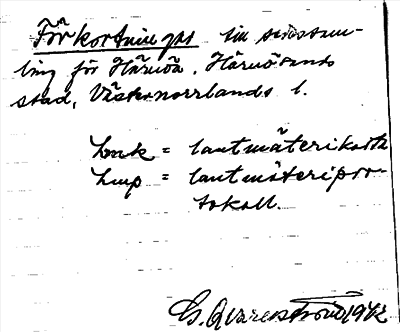 Förkortningar till avssam-
ling för Härnön, Härnösands
stad, Västernorrlands l.
Lmk = lantmäterikarta
Lmp = lantmäteripro-
tokoll.
G. Qvarnström 1942